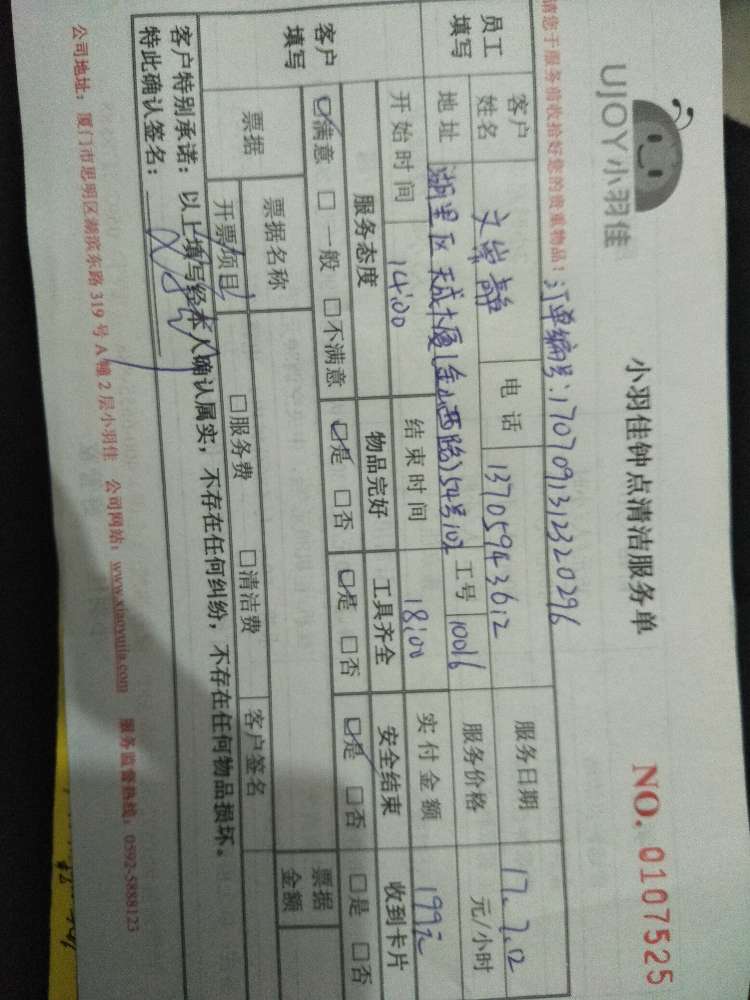 UJOY小羽佳
小羽佳钟点清洁服务单
NO. 0107525
请您于服务前收拾好您的贵重物品! 订单编号:1707091312320296
员工填写 客户姓名 电话 13705943612 服务日期 17.7.12
地址 湖里区天成大厦(金山西路)54号102 工号 10016 服务价格 元/小时
开始时间 14:00 结束时间 18:00 实付金额 199元
客户填写 服务态度 物品完好 工具齐全 安全结束 收到卡片
☑满意 □一般 □不满意 ☑是 □否 ☑是 □否 ☑是 □否 □是 □否
票据 票据名称 票据金额
开票项目 □服务费 □清洁费 客户签名
客户特别承诺:以上填写经本人确认属实,不存在任何纠纷,不存在任何物品损坏。
特此确认签名:
公司地址:厦门市思明区湖滨东路319号A幢2层小羽佳 公司网站:www.xiaoyujia.com 服务监督热线:0592-5888123